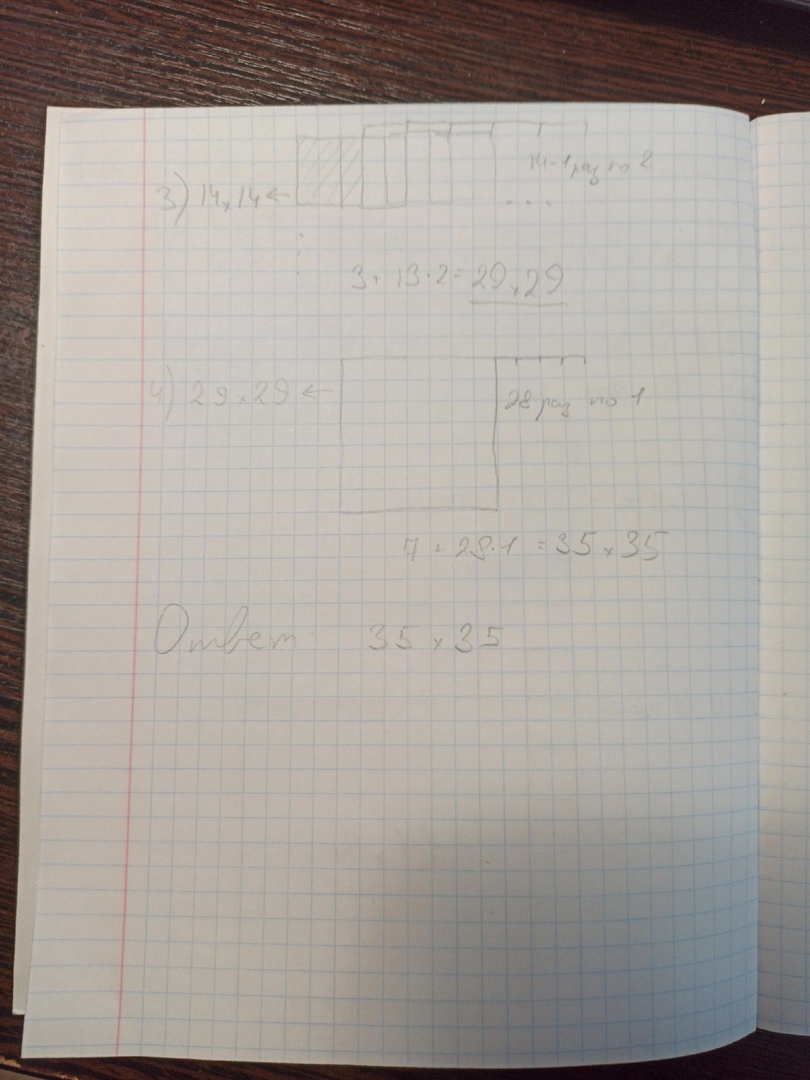 14-1 раз по 2
3) 14×14 ←
...
3 + 13·2 = 29×29
4) 29×29 ←
28 раз по 1
7 + 28·1 = 35×35
Ответ: 35×35